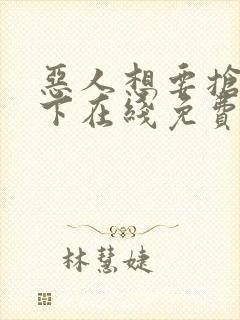 惡人想要搶
下在綫免費
林慧婕